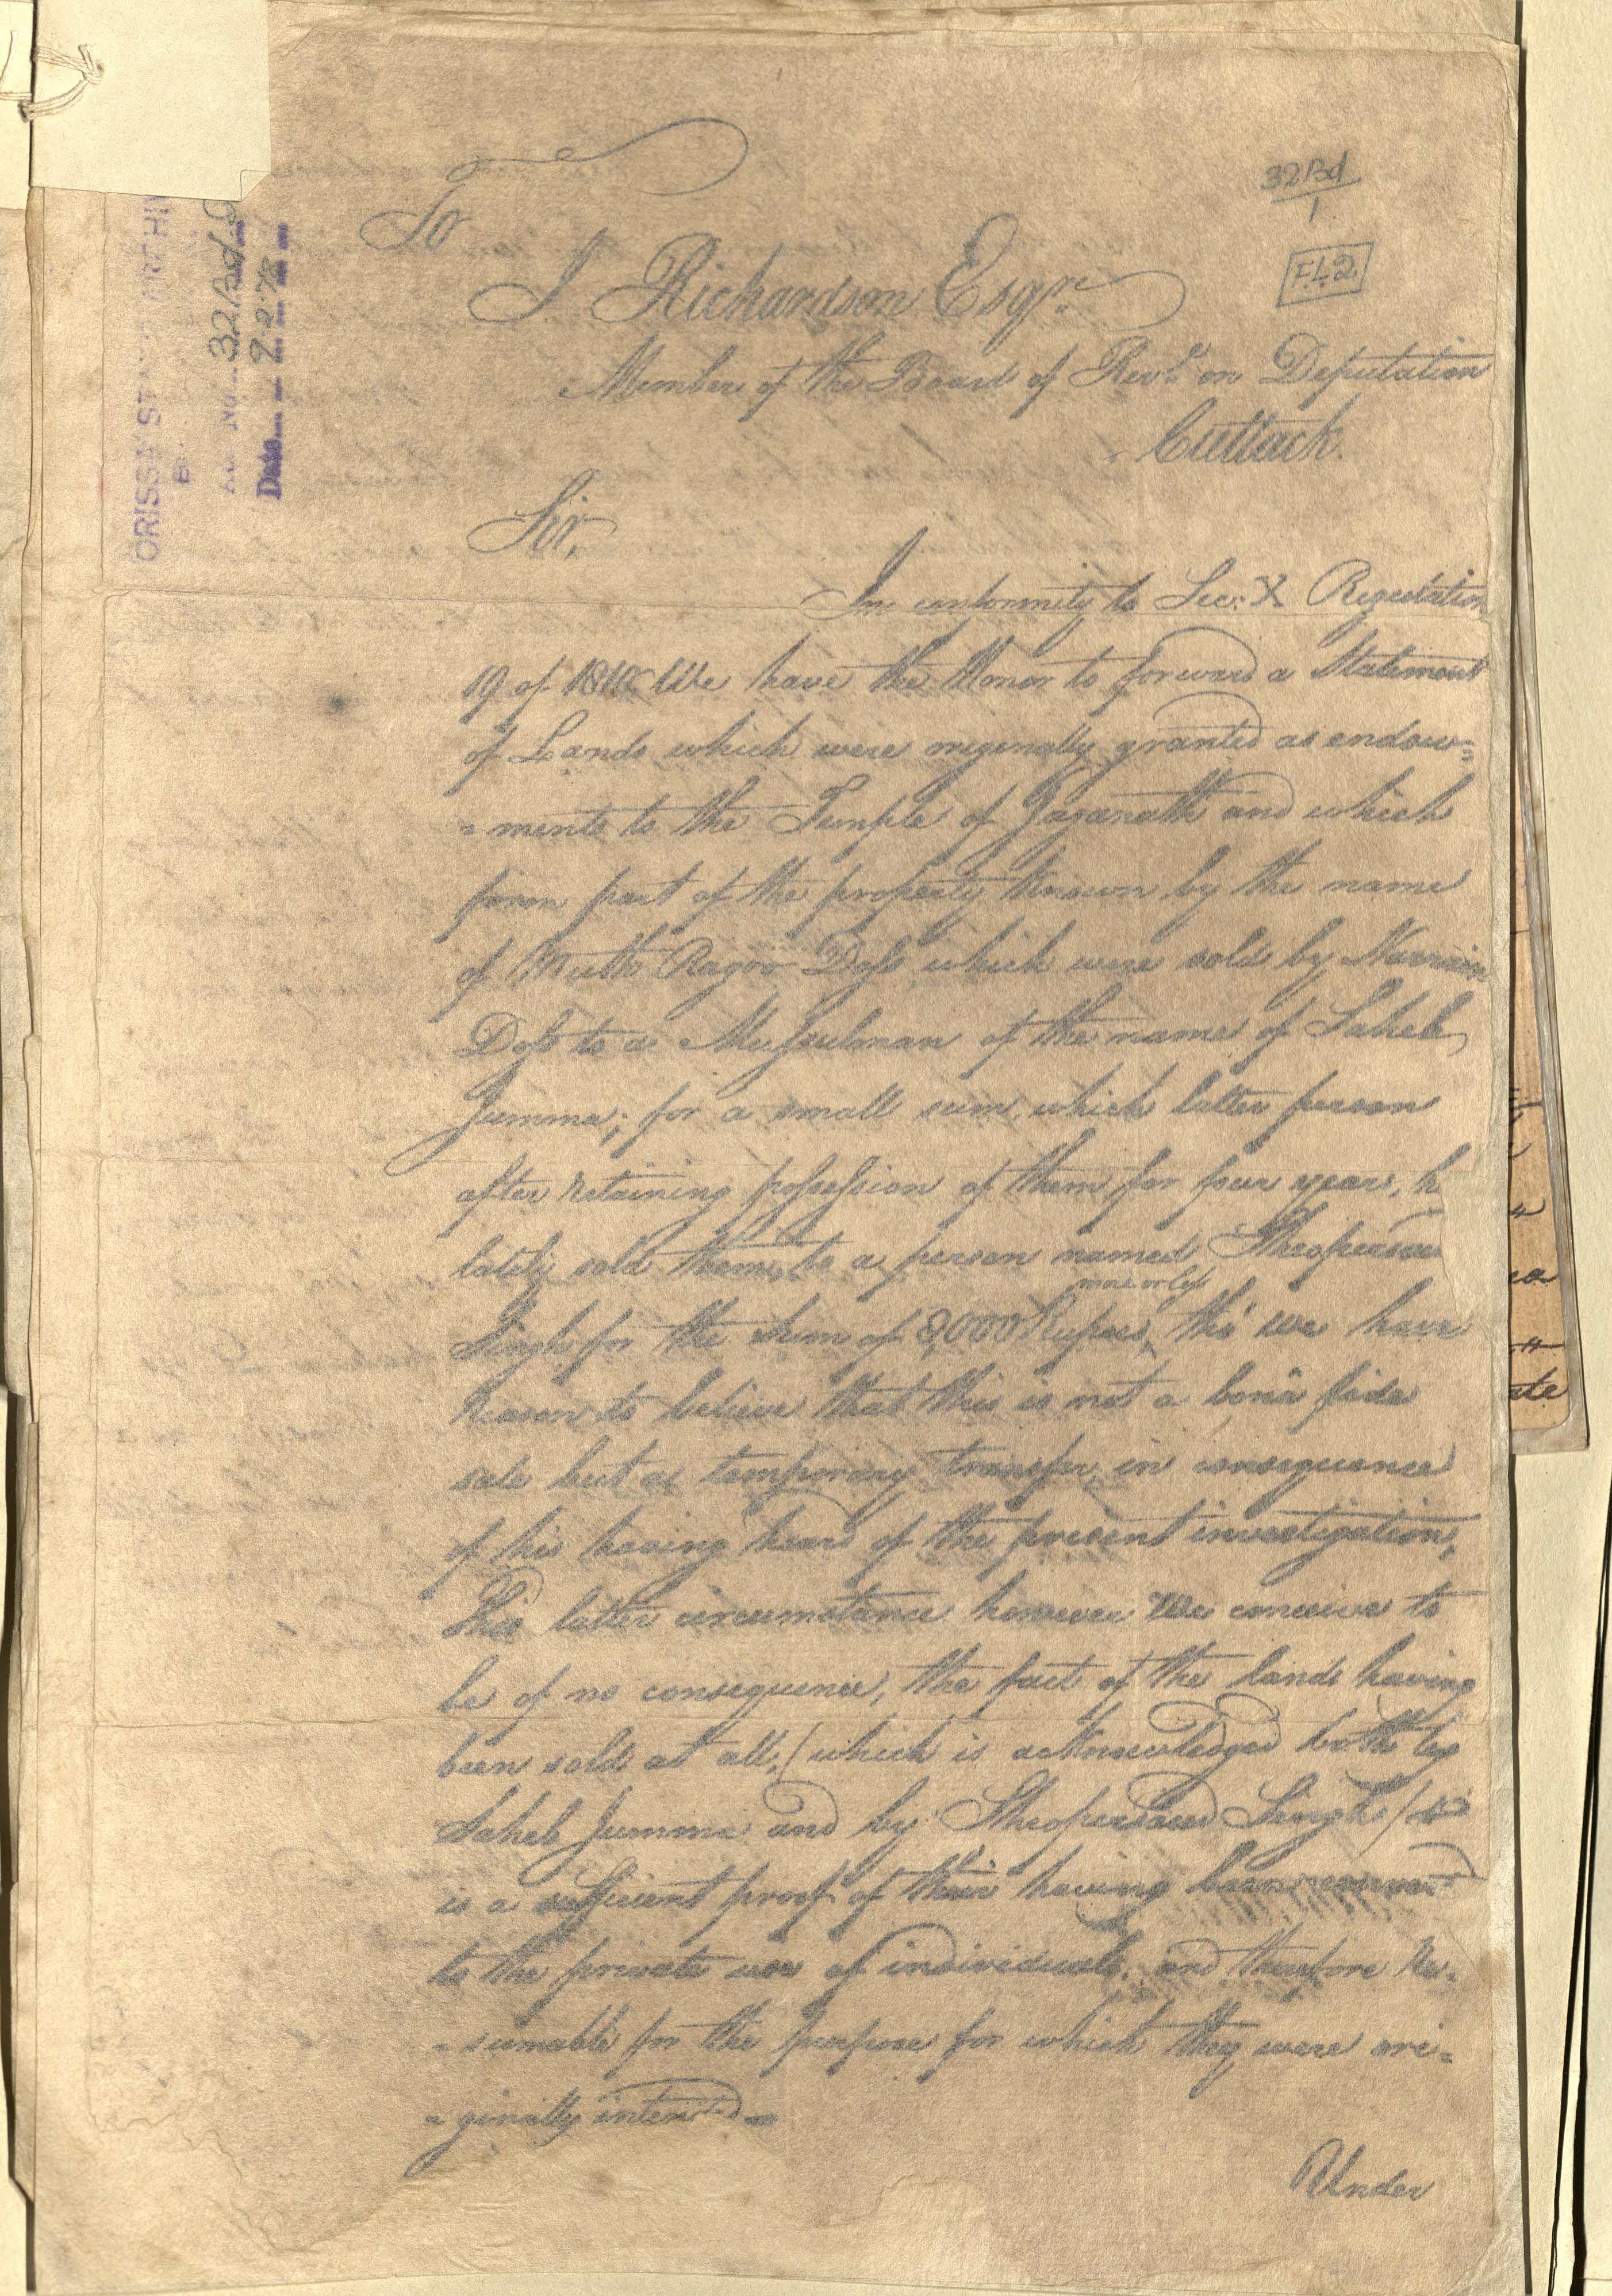 32Bd
1
F.L.2
ORISSA STATE ARCHIV
Acc No. 32 Bd
Date 9.2.78
To
J. Richardson Esqre
Member of the Board of Reve on Deputation
Cuttack.
Sir,
In conformity to Sec: X Regulation
19 of 1810 We have the Honor to forward a Statement
of Lands which were originally granted as endow=
=ments to the Temple of Jaganath and which
form part of the property known by the name
of Mutt Ragoo Doss which were sold by Narrain
Doss to a Mussulman of the name of Saheb
Jumma; for a small sum, which latter person
after retaining possession of them for four years, h
lately sold them to a person named Sheopersad
more or less
Singh for the sum of 8,000 Rupees, tho' we have
reason to believe that this is not a bonâ fide
sale but a temporary transfer in consequence
of his having heard of the present investigation,
This latter circumstance however We conceive to
be of no consequence, the fact of the lands having
been sold at all, (which is acknowledged both by
Saheb Jumma and by Sheopersaud Singh)
is a sufficient proof of their having been
to the private use of individuals, and therefore Re=
=sumable for the purpose for which they were ori=
=ginally intend
Under